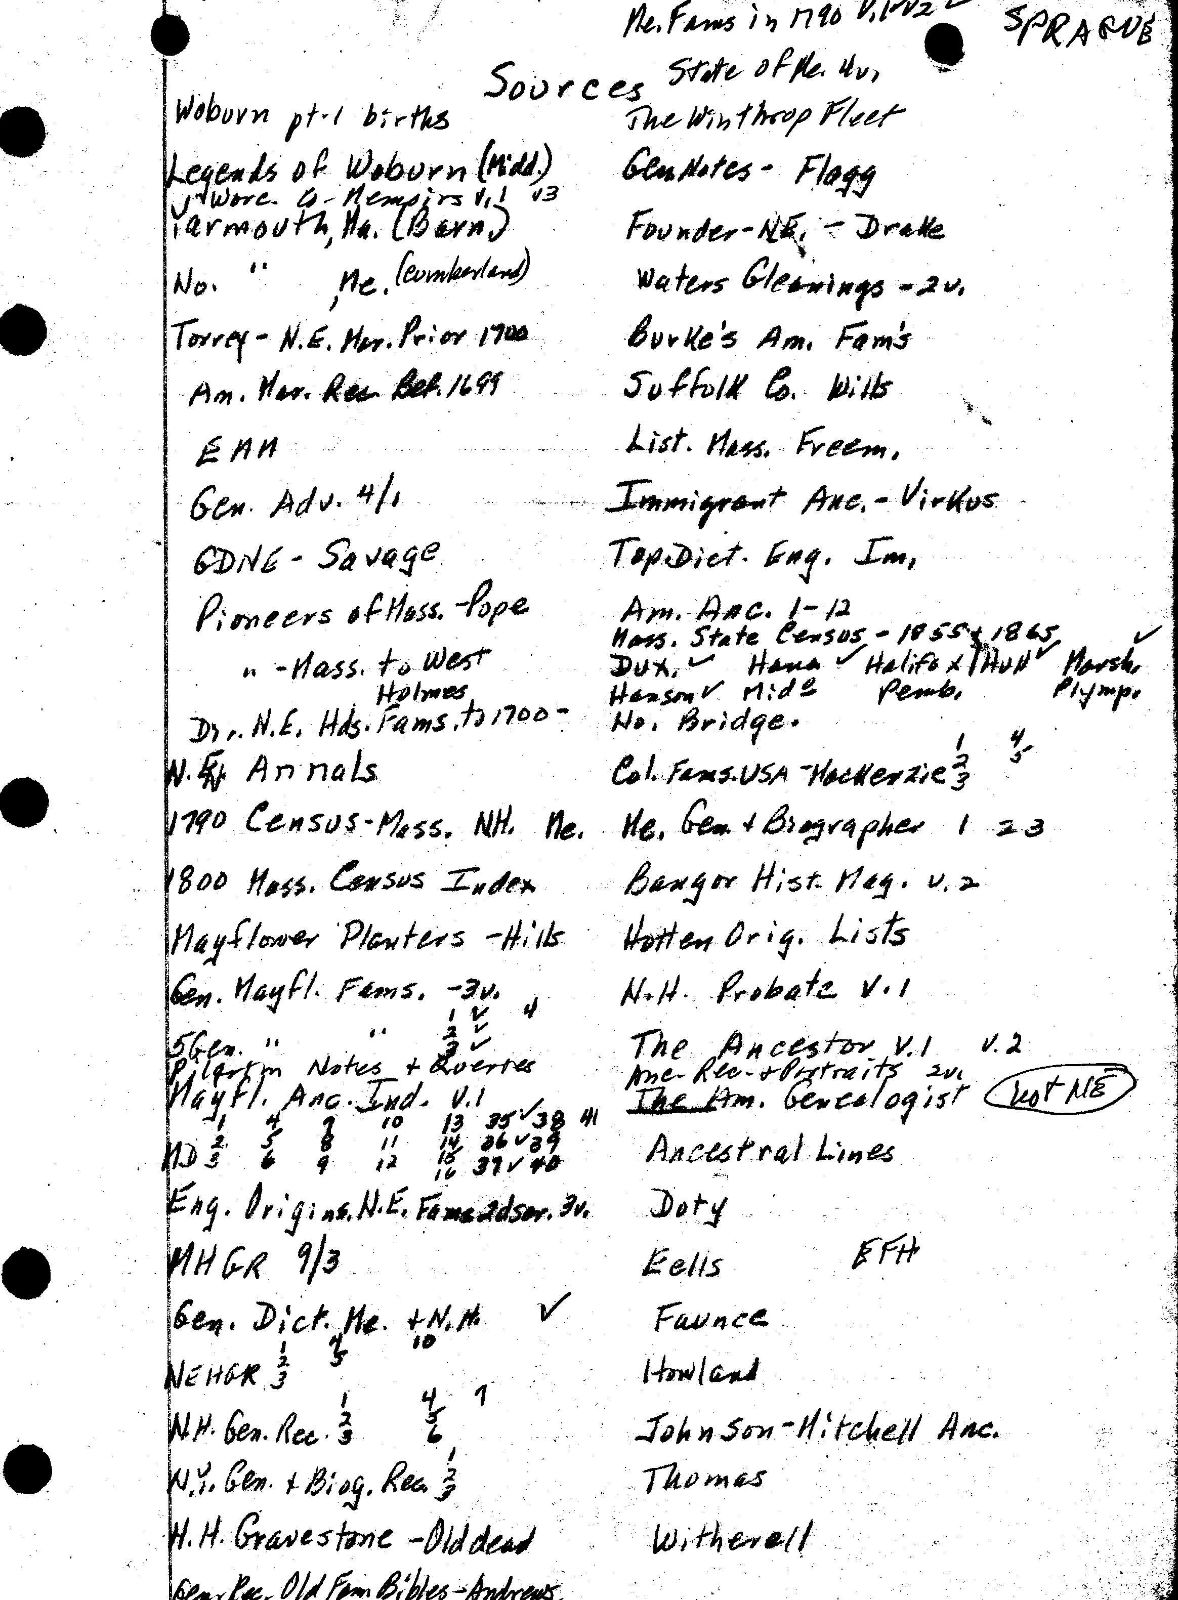 Me. Fams in 1790 v.1✓v2 ✓
SPRAGUE
Sources
State of Me. 4v.
Woburn pt-1 births
Legends of Woburn (Midd.)
Worc. Co. Memoirs v.1 v3
Yarmouth, Ma. (Barn.)
No. " , Me. (Cumberland)
Torrey - N.E. Mar. Prior 1700
Am. Mar. Rec. Bef. 1699
EMM
Gen. Adv. 4/1
GDNE - Savage
Pioneers of Mass. - Pope
" - Mass. to West
Holmes
Dir. N.E. Hds. Fams. to 1700 -
N.E. Annals
1790 Census - Mass. NH. Me.
1800 Mass. Census Index
Mayflower Planters - Hills
Gen. Mayfl. Fams. - 3v.
5 Gen. " " 1 ✓ 2 ✓ 3 ✓ 4
Pilgrim Notes + Querries
Mayfl. Anc. Ind. v.1
1 4 9 10 13 35 ✓ 38 41
2 5 8 11 14 36 ✓ 39
MD 3 6 9 12 15 37 ✓ 40
16
Eng. Origins. N.E. Fams 2d ser. 3v.
MHGR 9/3
Gen. Dict. Me. + N.H. ✓
NEHGR 1 2 3 4 5 10
N.H. Gen. Rec. 1 2 3 4 5 6 7
N.Y. Gen. + Biog. Rec. 1 2 3
H.H. Gravestone - Old dead
Gen. Rec. Old Fam Bibles - Andrews
The Winthrop Fleet
Gen Notes - Flagg
Founder - N.E. - Drake
Waters Gleanings - 2v.
Burke's Am. Fam's
Suffolk Co. Wills
List. Mass. Freem.
Immigrant Anc. - Virkus
Top. Dict. Eng. Im.
Am. Anc. 1-12
Mass. State Census - 1855 + 1865
Dux. ✓ Hano ✓ Halifax Hull ✓ Marsh. ✓
Hanson ✓ Midd Pemb. Plymp.
No. Bridge.
Col. Fams. USA - MacKenzie 1 2 3 4 5
Me. Gen + Biographer 1 2 3
Bangor Hist. Mag. v.2
Hotten Orig. Lists
N.H. Probate v.1
The Ancestor v.1 v.2
Anc. Rec. + Portraits 2v.
The Am. Genealogist Not NE
Ancestral Lines
Doty
Eells EFH
Faunce
Howland
Johnson - Mitchell Anc.
Thomas
Witherell